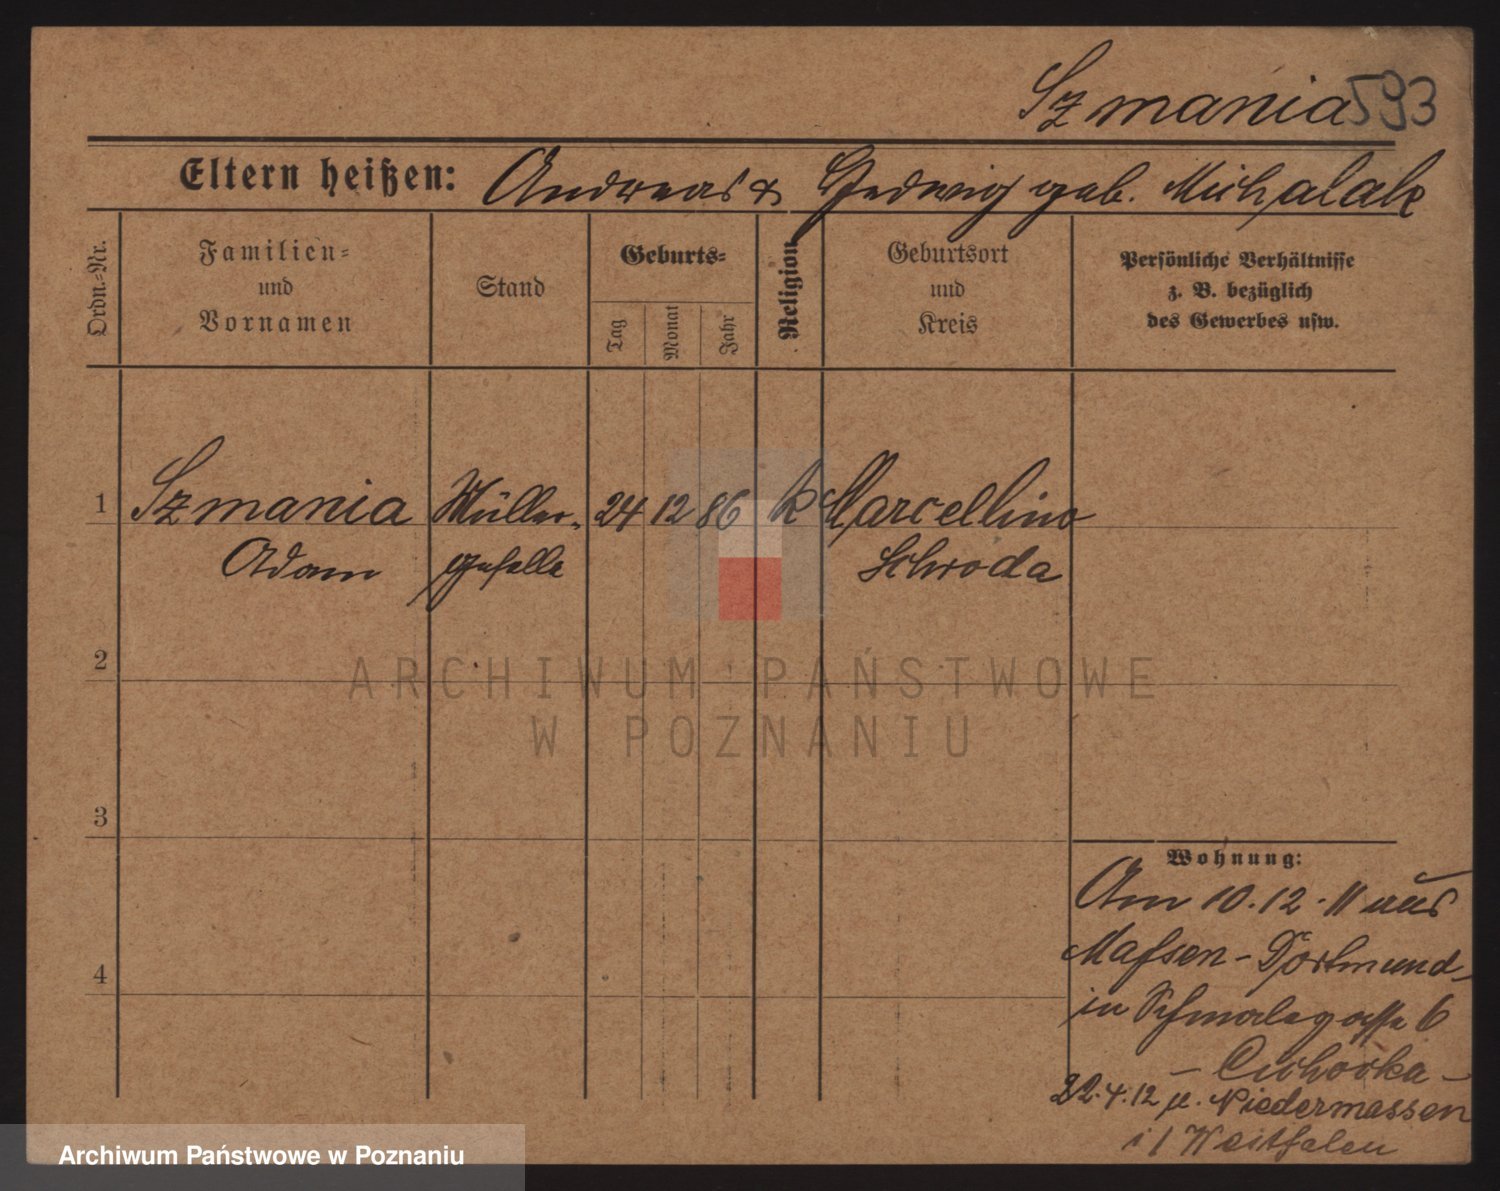 Szmania 593
Eltern heißen: Andreas & Hedwig geb. Michalak
Ordn.-Nr.
Familien-
und
Vornamen
Stand
Geburts-
Tag
Monat
Jahr
Religion
Geburtsort
und
Kreis
Persönliche Verhältnisse
z. B. bezüglich
des Gewerbes usw.
1 Szmania Müller- 24 12 86 k Marcellino
Adam geselle Schroda
2
ARCHIWUM PAŃSTWOWE
W POZNANIU
3
4
Wohnung:
Am 10.12.11 aus
Massen-Dortmund
in Schmalegasse 6
22.4.12 n. Niedermassen
i/Westfalen
Archiwum Państwowe w Poznaniu